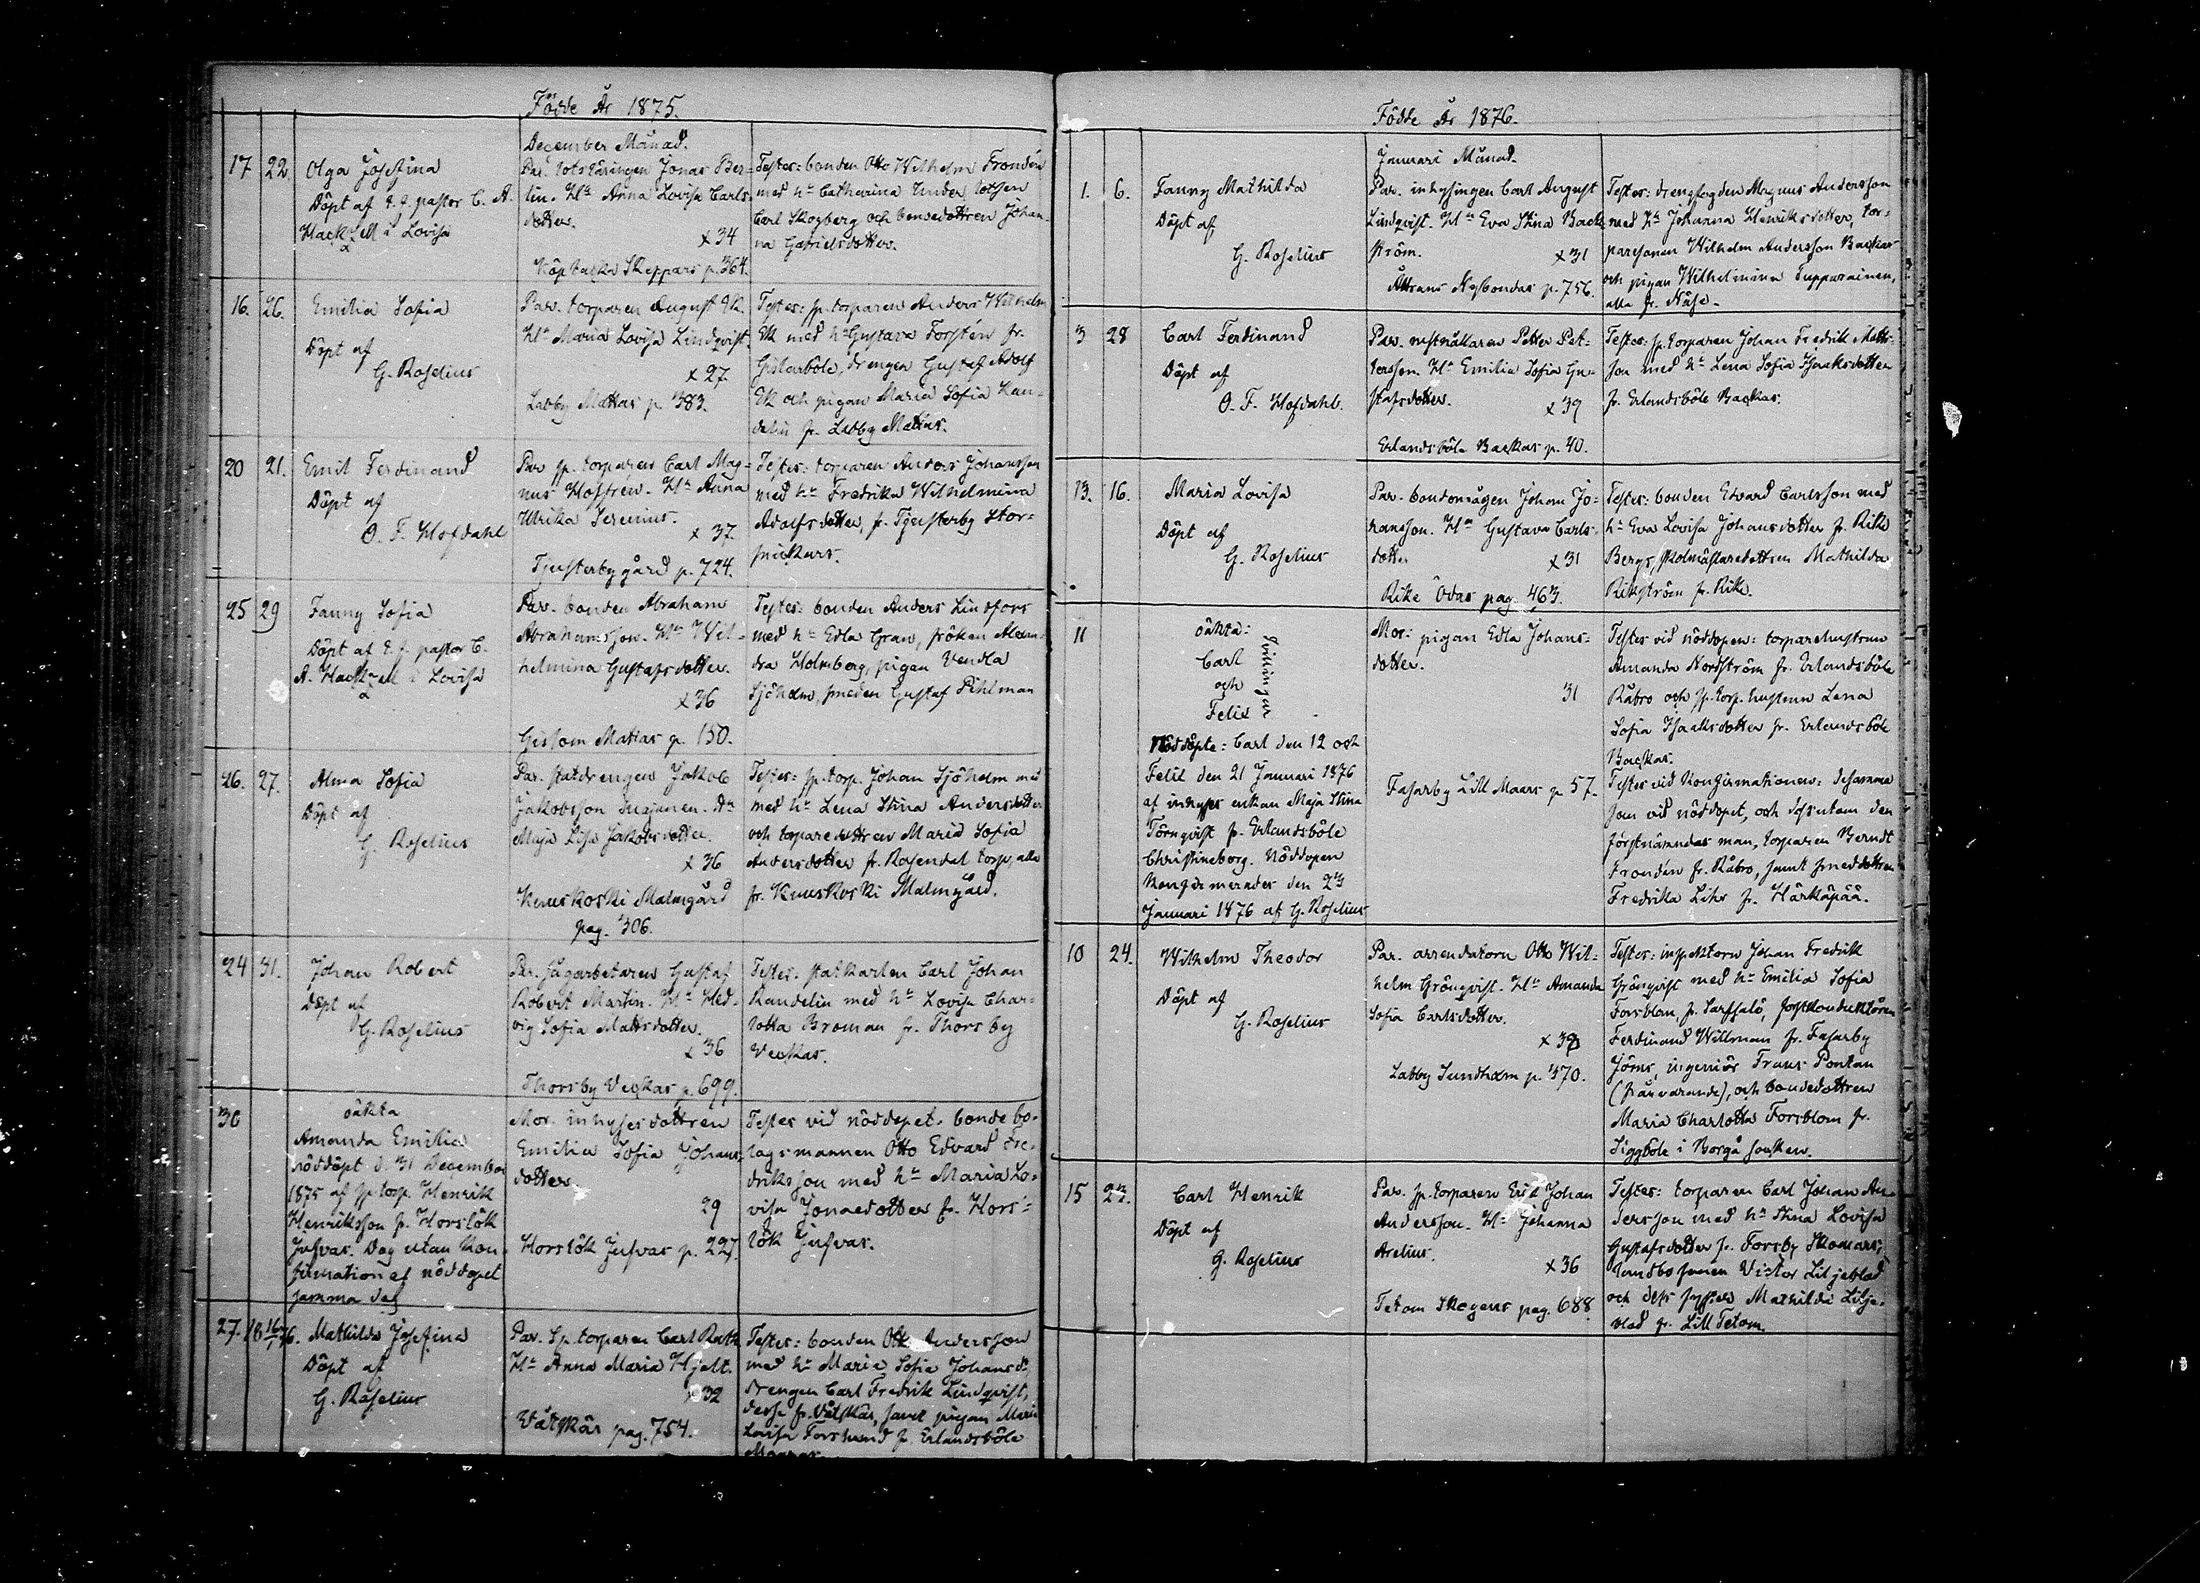 Födde År 1875.
December Månad.
17 22. Olga Josefina
Döpt af t. f. pastor C. A.
Hackzell i Lovisa
Par. lotslärlingen Jonas Ber=
lin. Hu Anna Lovisa Carls=
dotter.
x 34
Köpbacka Skeppars p. 364.
Testes: bonden Otto Wilhelm Frondén
med hu Catharina Linder, lotsen
Carl Skogberg och bondedottren Johan=
na Gabrielsdotter.
16. 26. Emilia Sofia
Döpt af
G. Roselius
Par. torparen August Ek.
Hu Maria Lovisa Lindqvist.
x 27.
Labby Mattas p. 383.
Testes: sp. torparen Anders Wilhelm
Ek med hu Gustava Forstén fr.
Gislarböle, drengen Gustaf Adolf
Ek och pigan Maria Sofia Ran=
delin fr. Labby Mattas.
20 21. Emil Ferdinand
Döpt af
O. F. Hofdahl
Par. sp. torparen Carl Mag=
nus Hoffrén. Hu Anna
Ulrika Serenius.
x 37.
Tjusterby gård p. 724.
Testes: torparen Anders Johansson
med hu Fredrika Wilhelmina
Adolfsdotter, fr. Tjusterby Stor=
pickars.
25 29 Fanny Sofia
Döpt af t. f. pastor C.
A. Hackzell i Lovisa
Par. bonden Abraham
Abrahamsson. Hu Wil=
helmina Gustafsdotter.
x 36
Gislom Mattas p. 150.
Testes: bonden Anders Lindfors
med hu Edla Gran, fröken Alexan=
dra Holmberg, pigan Vendla
Sjöholm, smeden Gustaf Pihlman
26. 27. Alma Sofia
Döpt af
G. Roselius
Par. statdrengen Jakob
Jakobsson Hu
Maja Lisa Jakobsdotter.
x 36
Kuuskoski Malmgård
pag. 306.
Testes: sp. torp. Johan Sjöholm med
med hu Lena Stina Andersdotter
och torparedottren Maria Sofia
Andersdotter fr. Rosendal torp, alla
fr. Kuuskoski Malmgård.
24 31. Johan Robert
Döpt af
G. Roselius
Par. sågarbetaren Gustaf
Robert Martin. Hu Hed=
vig Sofia Mattsdotter.
x 36
Thorsby Veckas p. 699.
Testes: statkarlen Carl Johan
Randelin med hu Lovisa Char=
lotta Broman fr. Thorsby
Veckas.
30 oäkta
Amanda Emilia
nöddöpt d. 31 December
1875 af sp. torp. Henrik
Henriksson fr. Horslök
Jusvas. Dog utan kon=
firmation af nöddopet
samma dag
Mor. inhysesdottren
Emilia Sofia Johans=
dotter.
29
Horslök Jusvas p. 227.
Testes vid nöddopet: bonde bo=
lagsmannen Otto Edvard Fre=
driksson med hu Maria Lo=
visa Jonaedotter fr. Hors=
lök Jusvas.
27. 18 16/1 76. Mathilda Josefina
Döpt af
G. Roselius
Par. Sp. torparen Carl
Hu Anna Maria Hjelt.
x 32
Våtskär pag. 754.
Testes: bonden Otto Andersson
med hu Maria Sofia Johansdr
drengen Carl Fredrik Lindqvist,
desse fr. Våtskär, samt pigan Maria
Lovisa Forslund fr. Erlandsböle
Födde År 1876.
Januari Månad.
1. 6. Fanny Mathilda
Döpt af
G. Roselius
Par. inhysingen Carl August
Lindqvist. Hu Eva Stina Back=
ström.
x 31
Åttrans Nybondas p. 756.
Testes: drengfogden Magnus Andersson
med hu Johanna Henriksdotter, tor=
paresonen Wilhelm Andersson Backas
och pigan Wilhelmina Tupparainen,
alla fr. Näse.
3 28 Carl Ferdinand
Döpt af
O. F. Hofdahl.
Par. notmakaren Petter Pet=
tersson. Hu Emilia Sofia Gu=
stafsdotter.
x 39
Erlandsböle Backas p. 40.
Testes: sp. torparen Johan Fredrik Matts=
son med hu Lena Sofia Isaaksdotter
fr. Erlandsböle Backas.
13. 16. Maria Lovisa
Döpt af
G. Roselius
Par. bondemågen Johan Jo=
hansson. Hu Gustava Carls=
dotter
x 31
Rike Ödas pag. 463.
Testes: bonden Edvard Carlsson med
hu Eva Lovisa Johansdotter fr. Rike
Bergs, skolmästaredottren Mathilda
Rikström fr. Rike.
11 oäkta:
Carl
och
Felix
tvillingar
Nöddöpte: Carl den 12 och
Felix den 21 Januari 1876
af inhyses enkan Maja Stina
Törnqvist fr. Erlandsböle
Christineborg. Nöddopen
konfirmerades den 23
Januari 1876 af G. Roselius
Mor: pigan Edla Johans=
dotter.
31
Fasarby Lill Maars p. 57.
Testes vid nöddopen: torparehustrun
Amanda Nordström fr. Erlandsböle
Råbro och sp. torp. hustrun Lena
Sofia Isaaksdotter fr. Erlandsböle
Backas.
Testes vid konfirmationen: desamma
som vid nöddopet, och dessutom den
förstnämndas man, torparen Berndt
Frondén fr. Råbro, samt smeddottren
Fredrika Lihr fr. Härkäpää.
10 24. Wilhelm Theodor
Döpt af
G. Roselius
Par. arrendatorn Otto Wil=
helm Grönqvist. Hu Amanda
Sofia Carlsdotter.
x
Labby Sundholm p. 370.
Testes: inspektorn Johan Fredrik
Grönqvist med hu Emilia Sofia
Forsblom, fr. Sarfsalö, forstkonduktören
Ferdinand Willman fr. Fasarby
Jörns, ingeniör Frans Pontan
(frånvarande), och bondedottren
Maria Charlotta Forsblom fr.
Siggböle i Borgå socken.
15 23. Carl Henrik
Döpt af
G. Roselius
Par. sp. torparen Erik Johan
Andersson. Hu Johanna
Arelius.
x 36
Tetom Skogens pag. 688
Testes: torparen Carl Johan An=
dersson med hu Stina Lovisa
Gustafsdotter fr. Forsby Skomars;
landbosonen Victor Liljeblad
och dess syster Mathilda Lilje=
blad fr. Lill Tetom.